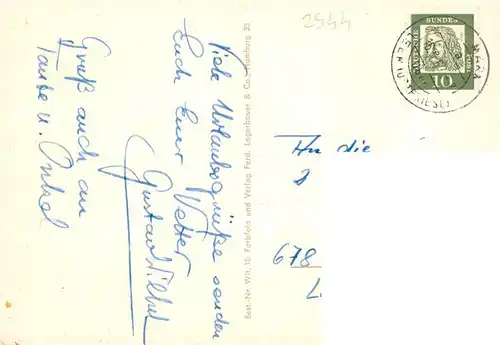 Viele Urlaubsgrüße senden
Euch Euer Vetter
Gruß auch an
Tante u. Onkel
Best.-Nr. Wit. 10 Farbfoto und Verlag Ferd. Lagerbauer & Co. Hamburg 23
2544
DEUTSCHE BUNDESPOST
10
An die
678
L